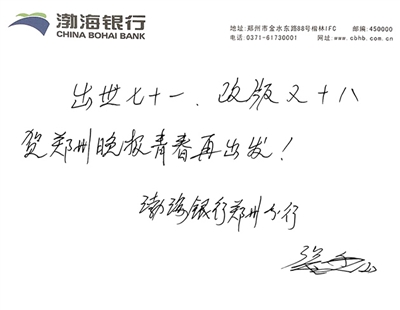 渤海银行
CHINA BOHAI BANK
地址:郑州市金水东路88号楷林IFC 邮编:450000
电话:0371-61730001 网址:www.cbhb.com.cn
出世七十一．改版又十八
贺郑州晚报青春再出发！
渤海银行郑州分行